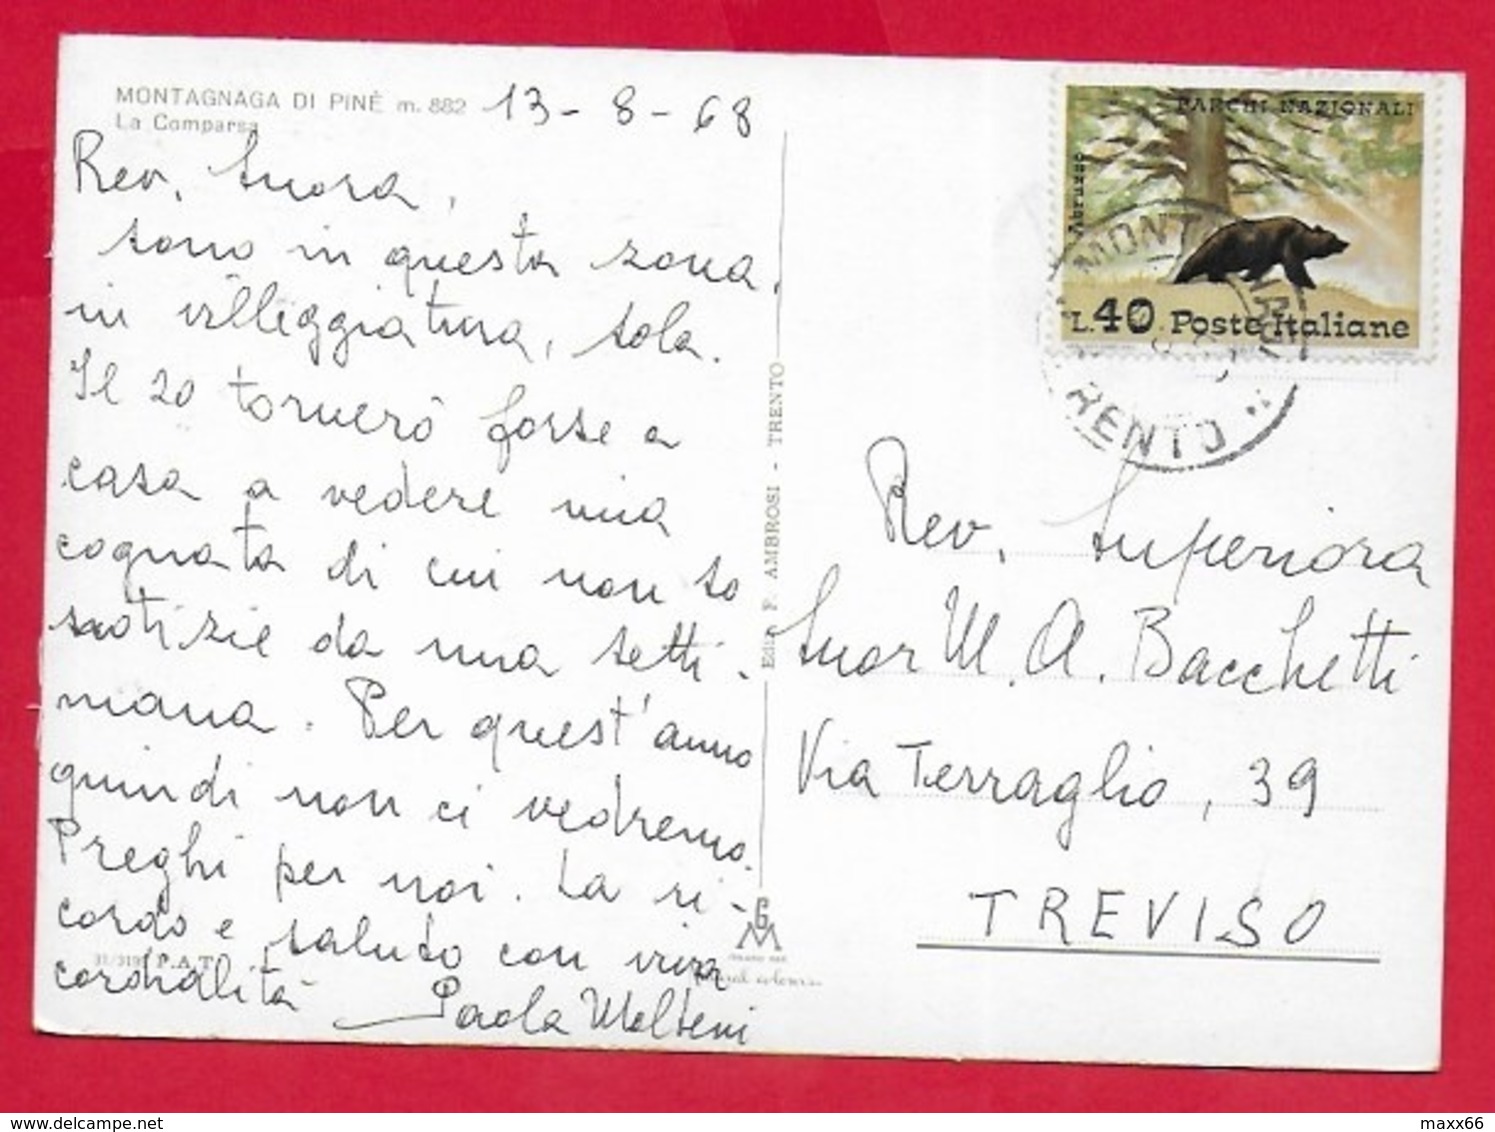 MONTAGNAGA DI PINÈ m. 882
La Comparsa
13 - 8 - 68
Rev. Suora,
sono in questa zona,
in villeggiatura, sola.
Il 20 tornerò forse a
casa a vedere mia
cognata di cui non so
notizie da una setti-
mana. Per quest'anno
quindi non ci vedremo.
Preghi per noi. La ri-
cordo e saluto con viva
cordialità Paola Molteni
31/319 P.A.T.
Ediz. F. AMBROSI - TRENTO
G M
PARCHI NAZIONALI
Abruzzo
L. 40 Poste Italiane
MONTAGNAGA
TRENTO
Rev. Superiora
Suor M. A. Bacchetti
Via Terraglio, 39
TREVISO
maxx66